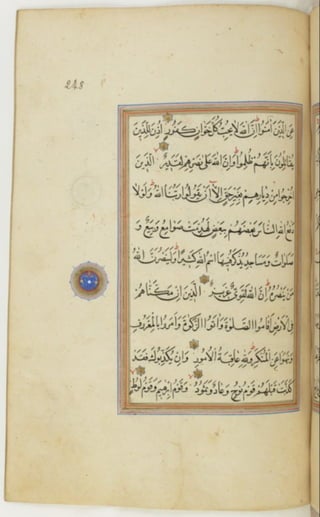 248
عَنِ الَّذِينَ آمَنُوا إِنَّ اللَّهَ لَا يُحِبُّ كُلَّ خَوَّانٍ كَفُورٍ أُذِنَ لِلَّذِينَ
يُقَاتَلُونَ بِأَنَّهُمْ ظُلِمُوا وَإِنَّ اللَّهَ عَلَى نَصْرِهِمْ لَقَدِيرٌ الَّذِينَ
أُخْرِجُوا مِنْ دِيَارِهِمْ بِغَيْرِ حَقٍّ إِلَّا أَنْ يَقُولُوا رَبُّنَا اللَّهُ وَلَوْلَا
دَفْعُ اللَّهِ النَّاسَ بَعْضَهُمْ بِبَعْضٍ لَهُدِّمَتْ صَوَامِعُ وَبِيَعٌ وَ
صَلَوَاتٌ وَمَسَاجِدُ يُذْكَرُ فِيهَا اسْمُ اللَّهِ كَثِيرًا وَلَيَنْصُرَنَّ اللَّهُ
مَنْ يَنْصُرُهُ إِنَّ اللَّهَ لَقَوِيٌّ عَزِيزٌ الَّذِينَ إِنْ مَكَّنَّاهُمْ
فِي الْأَرْضِ أَقَامُوا الصَّلَوةَ وَآتَوُا الزَّكَوةَ وَأَمَرُوا بِالْمَعْرُوفِ
وَنَهَوْا عَنِ الْمُنْكَرِ وَلِلَّهِ عَاقِبَةُ الْأُمُورِ وَإِنْ يُكَذِّبُوكَ فَقَدْ
كَذَّبَتْ قَبْلَهُمْ قَوْمُ نُوحٍ وَعَادٌ وَثَمُودُ وَقَوْمُ إِبْرَهِيمَ وَقَوْمُ لُوطٍ